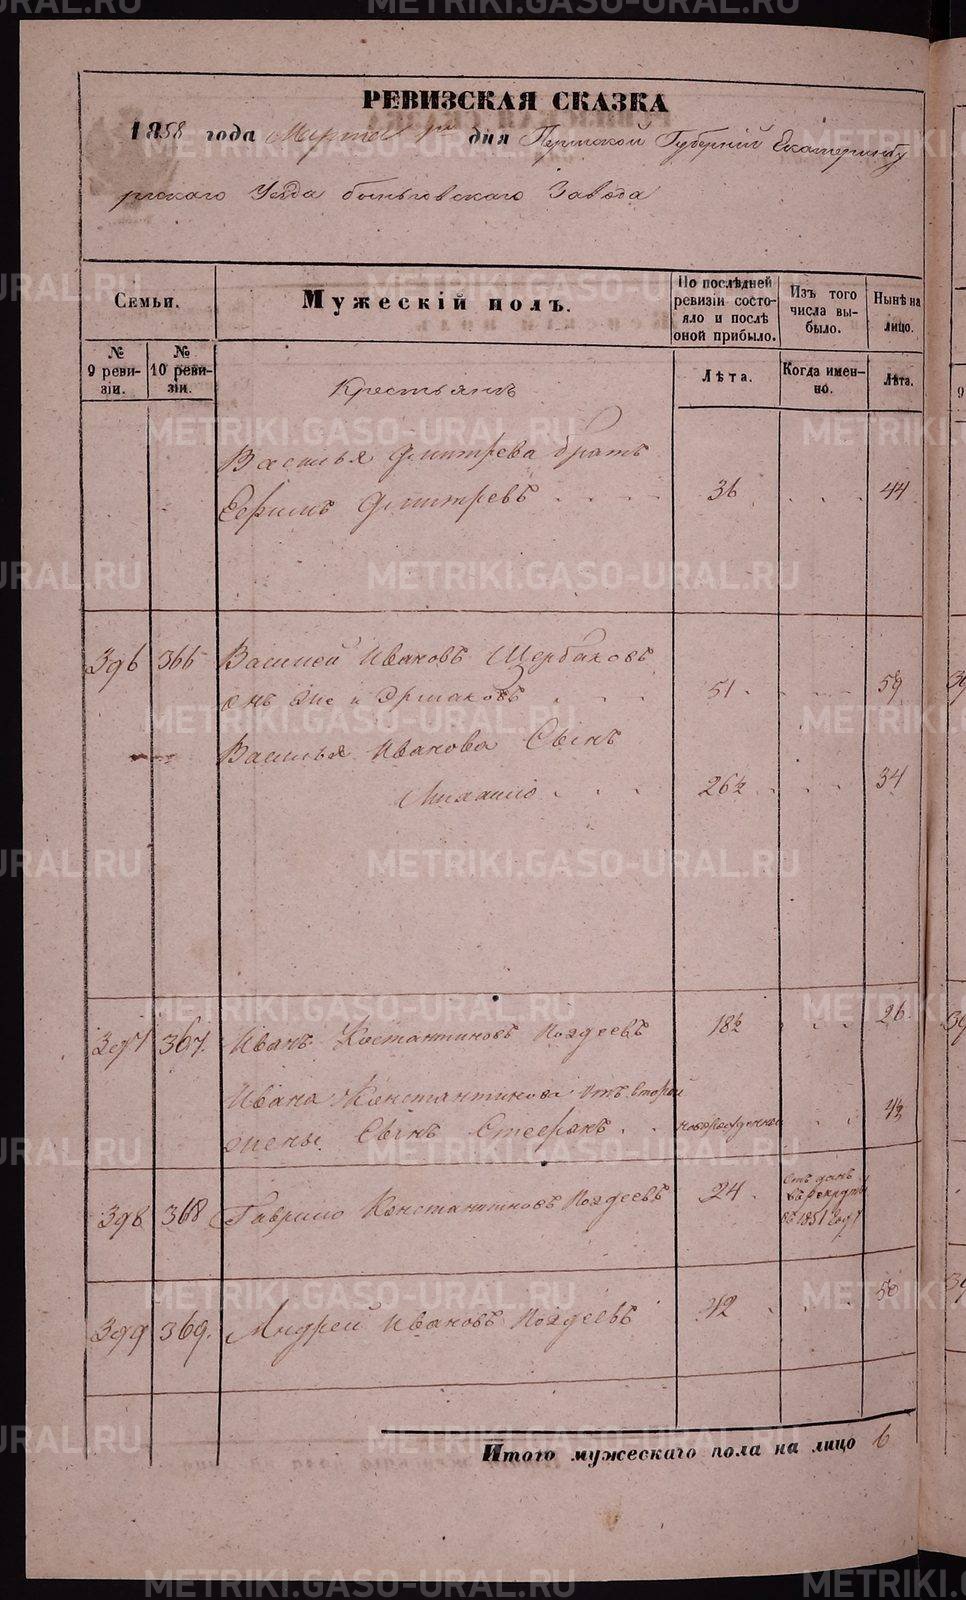 РЕВИЗСКАЯ СКАЗКА
1858 года Марта 1го дня Пермской Губерніи Екатеринбу
ргскаго Уезда быньговскаго Завода
Семьи.
Мужескій полъ.
По послѣдней ревизіи состояло и послѣ оной прибыло.
Изъ того числа выбыло.
Нынѣ на лицо.
№ 9 ревизіи.
№ 10 ревизіи.
Лѣта.
Когда именно.
Лѣта.
Крестьянъ
Василья Дмитрева братъ
Ефимъ Дмитревъ 36 44
396 366 Василей Ивановъ Щербаковъ
онъ же и Ермаковъ 51 59
Василья Иванова Сынъ
Михаило 26½ 34
397 367. Иванъ Костантиновъ Поздеевъ 18½ 26
Ивана Константинова отъ второй
жены Сынъ Стефанъ новорожденной 4½
398 368 Гаврило Константиновъ Поздеевъ 24 отданъ въ рекруты въ 1851 году
399 369. Андрей Ивановъ Поздеевъ 42 50
Итого мужескаго пола на лицо 6
METRIKI.GASO-URAL.RU